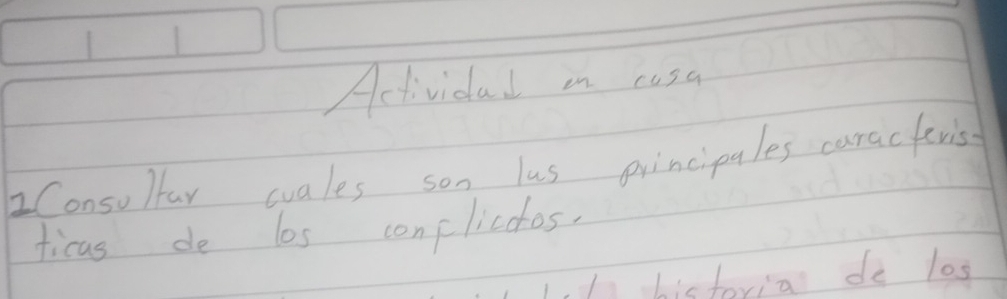 Actividad en casa
1 Consultar cuales son las principales caracteris-
ticas de los conflictos.
historia de los